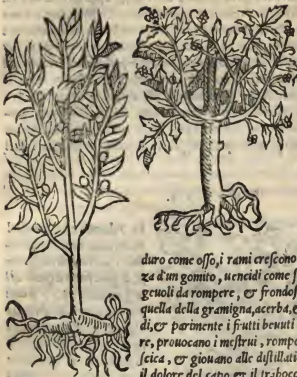 duro come osso, i rami crescono
za d'un gomito, uencidi come
geuoli da rompere, & frondosi
quella della gramigna, acerba, e
di, & parimente i frutti beuuti
re, prouocano i mestrui, rompo
scica, & giouano alle distillati
il dolore del capo, & il trabocc